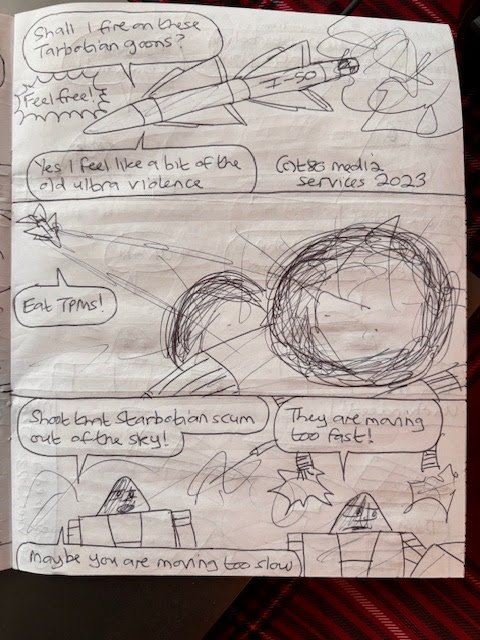 Shall I fire on these
Tarbotian goons?
Feel free!
I-50
Yes I feel like a bit of the
old ultra violence
Cat86 media
services 2023
Eat TPMs!
Shoot that Starbotian scum
out of the sky!
They are moving
too fast!
Maybe you are moving too slow